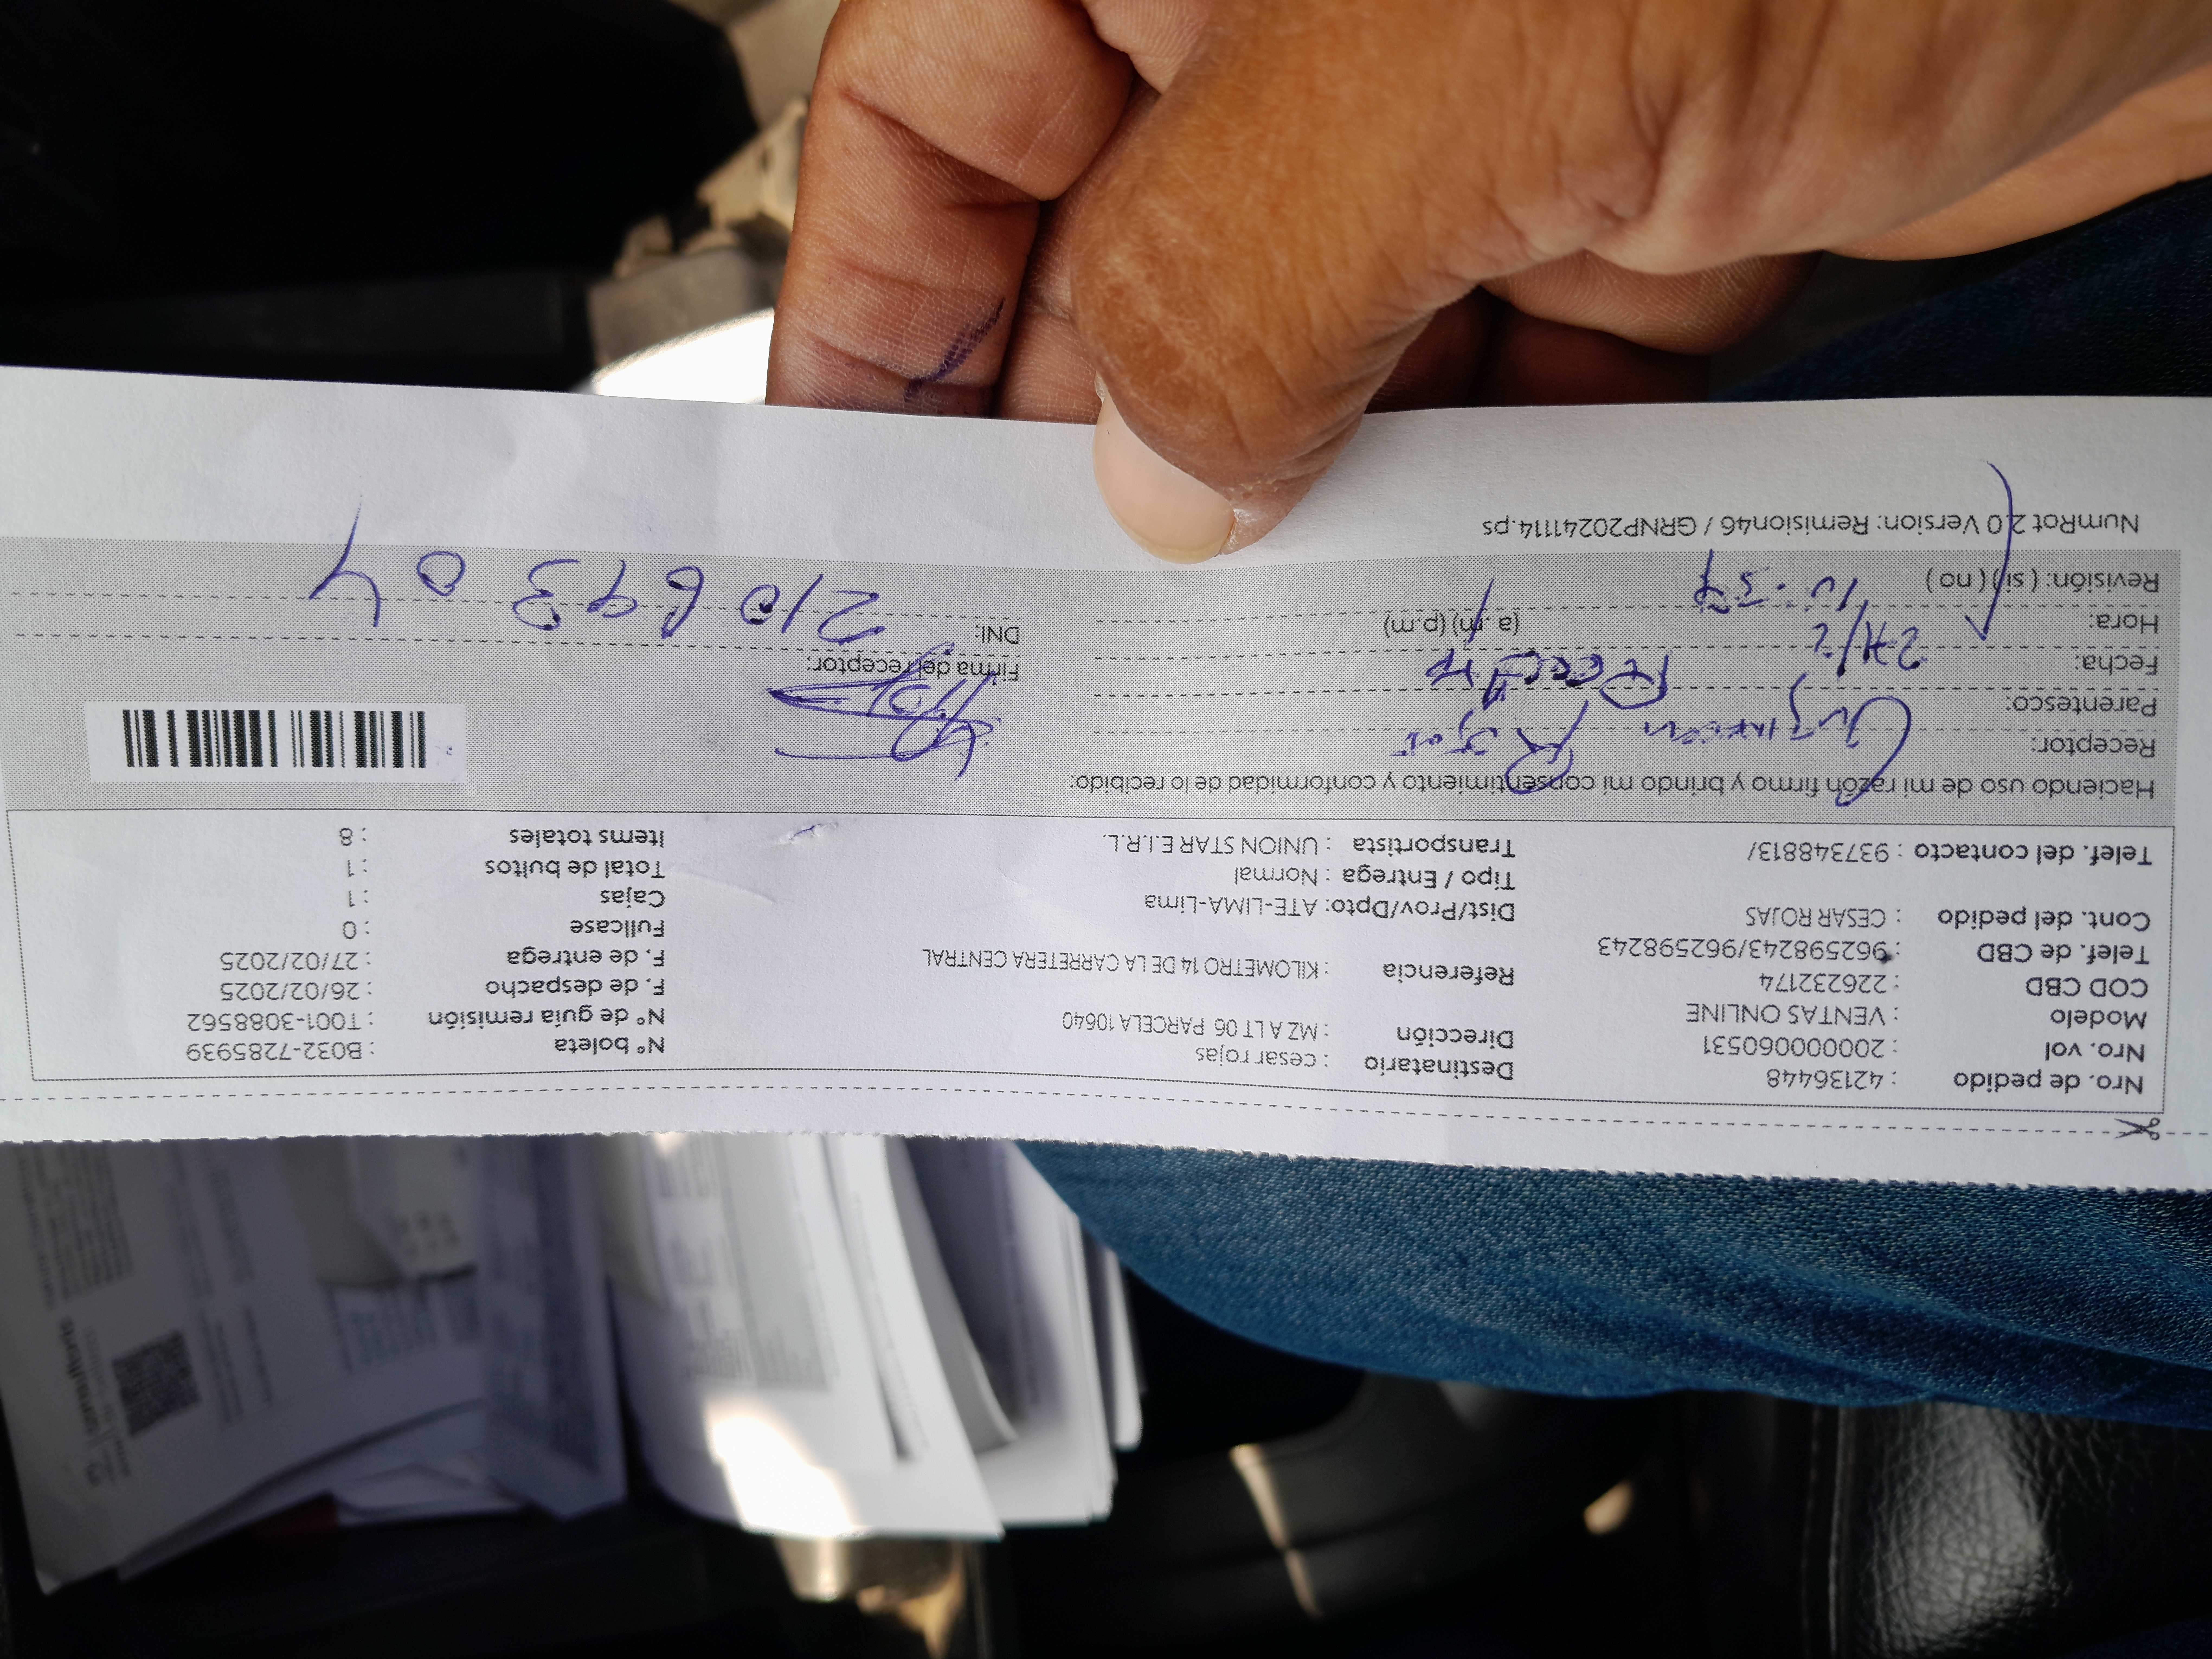 Nro. de pedido : 42136448
Nro. vol : 20000060531
Modelo : VENTAS ONLINE
COD CBD : 226232174
Telef. de CBD : 962598243/962598243
Cont. del pedido : CESAR ROJAS
Telef. del contacto : 937348813/
Destinatario : cesar rojas
Dirección : MZ A LT 06 PARCELA 10640
Referencia : KILOMETRO 14 DE LA CARRETERA CENTRAL
Dist/Prov/Dpto: ATE-LIMA-Lima
Tipo / Entrega : Normal
Transportista : UNION STAR E.I.R.L.
N° boleta : B032-7285939
N° de guía remisión : T001-3088562
F. de despacho : 26/02/2025
F. de entrega : 27/02/2025
Fullcase : 0
Cajas : 1
Total de bultos : 1
Items totales : 8
Haciendo uso de mi razón firmo y brindo mi consentimiento y conformidad de lo recibido:
Receptor: Rojas
Parentesco:
Fecha:
Hora: (a.m) (p.m)
Revisión: ( si ) ( no )
Firma del receptor:
DNI: 21069304
NumRot 2.0 Version: Remision46 / GRNP20241114.ps